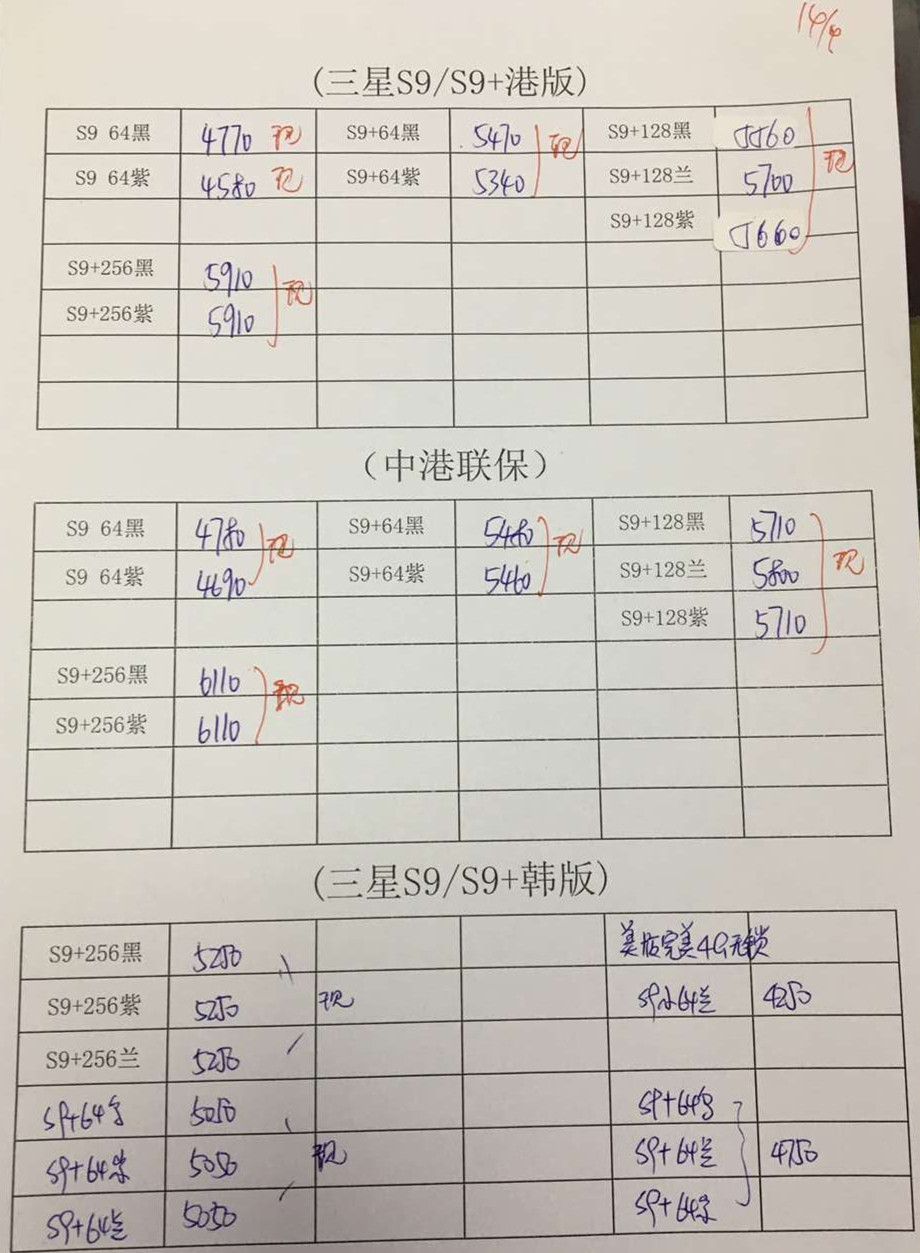 14/4
(三星S9/S9+港版)
S9 64黑 4770 现 S9+64黑 5470 现 S9+128黑 5560 现
S9 64紫 4580 现 S9+64紫 5340 S9+128兰 5700
S9+128紫 5660
S9+256黑 5910 现
S9+256紫 5910
(中港联保)
S9 64黑 4780 现 S9+64黑 5480 现 S9+128黑 5710 现
S9 64紫 4690 S9+64紫 5460 S9+128兰 5800
S9+128紫 5710
S9+256黑 6110 现
S9+256紫 6110
(三星S9/S9+韩版)
S9+256黑 5250 美版完美4G无锁
S9+256紫 5250 现 S9小64兰 4250
S9+256兰 5250
S9+64 5050 S9+64
S9+64紫 5050 现 S9+64兰 4750
S9+64兰 5050 S9+64